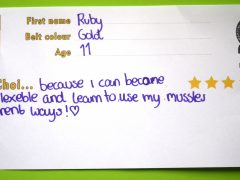 First name Ruby
Belt colour Gold
Age 11
Chol... because I can become
flexeble and learn to use my mussles
rent ways!